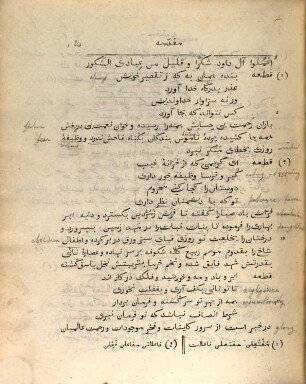 مقدمه
اعملوا آل داود شکرا و قلیل من عبادی الشکور
(۱) قطعه بنده همان به که ز تقصیر خویش
عذر بدرگاه خدا آورد
ورنه سزاوار خداوندیش
کس نتواند که بجا آورد
باران رحمت بی حسابش همه را رسیده و خوان نعمت بی دریغش
همه جا کشیده پردهٔ ناموس بندگان بگناه فاحش ندرد و وظیفهٔ
روزی بخطای منکر نبرد
(۲) قطعه ای کریمی که از خزانهٔ غیب
گبر و ترسا وظیفه خور داری
دوستان را کجا کنی محروم
تو که با دشمنان نظر داری
فراش باد صبا را گفته تا فرش زمردین بگسترد و دایهٔ ابر
بهاری را فرموده تا بنات نبات را در مهد زمین بپرورد و
درختان را بخلعت نوروزی قبای سبز ورق در بر کرده و اطفال
شاخ را بقدوم موسم ربیع کلاه شکوفه بر سر نهاده و عصارهٔ نالی
بقدرتش شهد فایق شده و تخم خرما بتربیتش نخل باسق گشته
قطعه ابر و باد و مه و خورشید و فلک در کارند
تا تو نانی بکف آری و بغفلت نخوری
همه از بهر تو سرگشته و فرمان بردار
شرط انصاف نباشد که تو فرمان نبری
در خبر است از سرور کاینات و مفخر موجودات و رحمت عالمیان